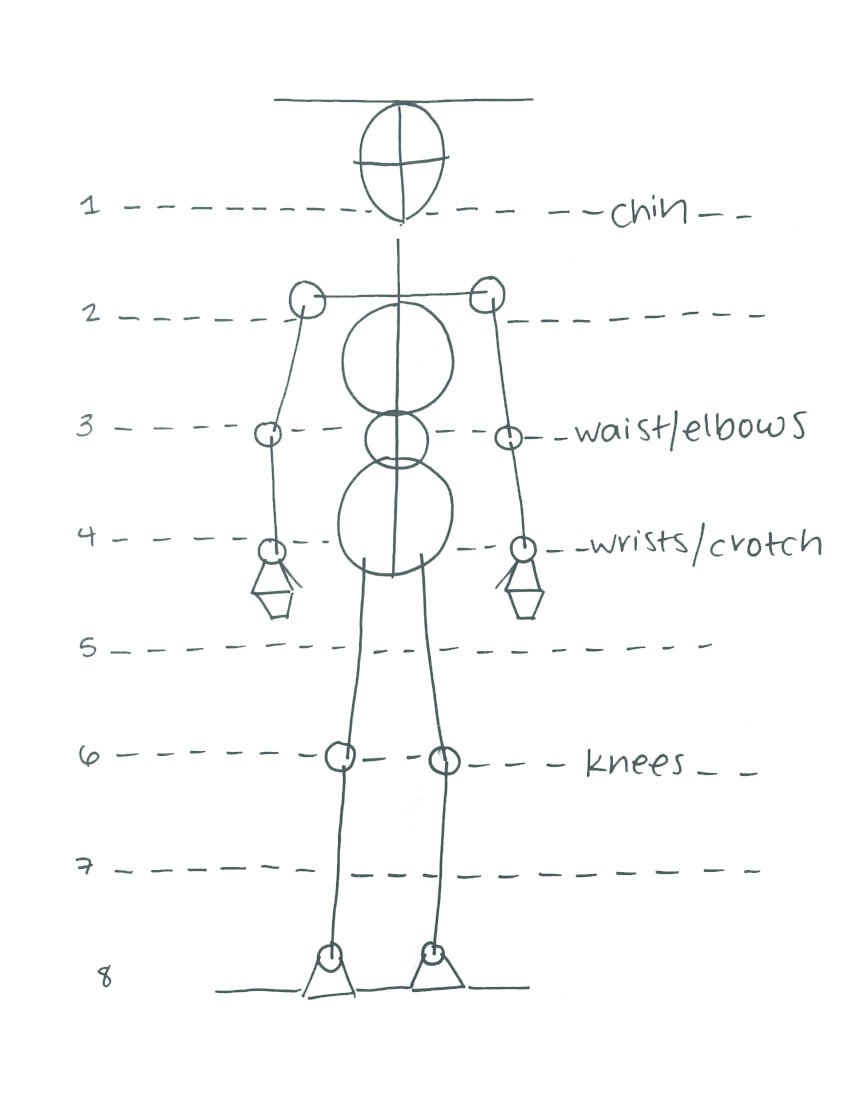 1 chin
2
3 waist/elbows
4 wrists/crotch
5
6 knees
7
8